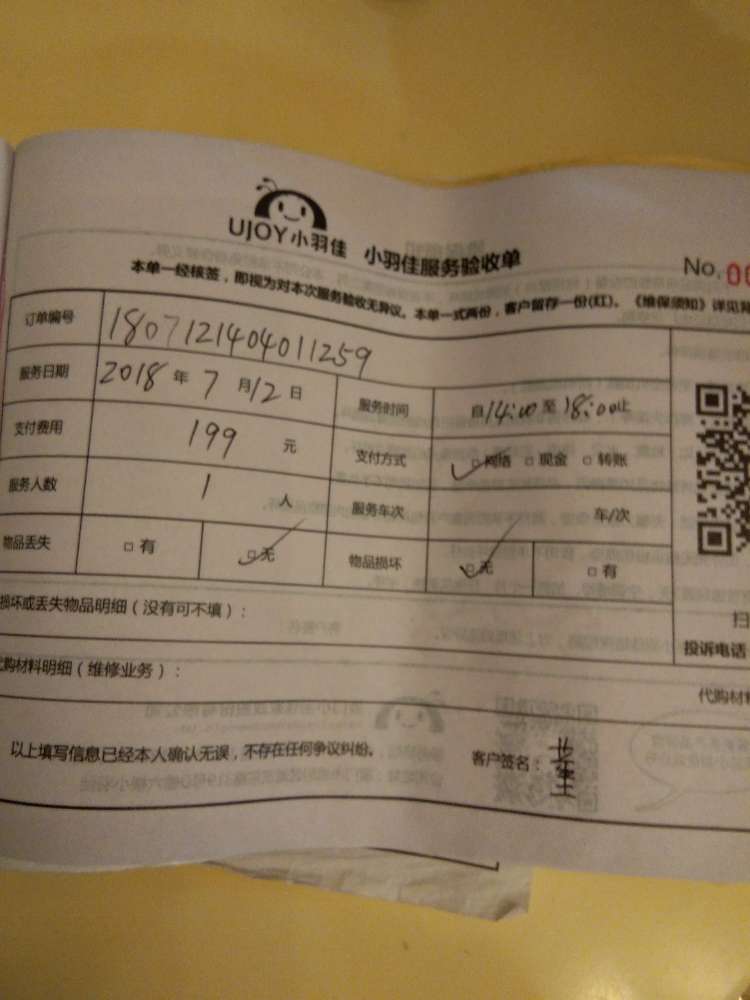 UJOY小羽佳 小羽佳服务验收单
No. 00
本单一经核签，即视为对本次服务验收无异议。本单一式两份，客户留存一份(红)。《维保须知》详见背
订单编号 1807121404011259
服务日期 2018年7月12日 服务时间 自14:00至18:00止
支付费用 199元 支付方式 ✓□网络 □现金 □转账
服务人数 1人 服务车次 车/次
物品丢失 □有 ☑无 物品损坏 ☑无 □有
损坏或丢失物品明细（没有可不填）：
扫
投诉电话
代购材料明细（维修业务）：
代购材料
以上填写信息已经本人确认无误，不存在任何争议纠纷。 客户签名：